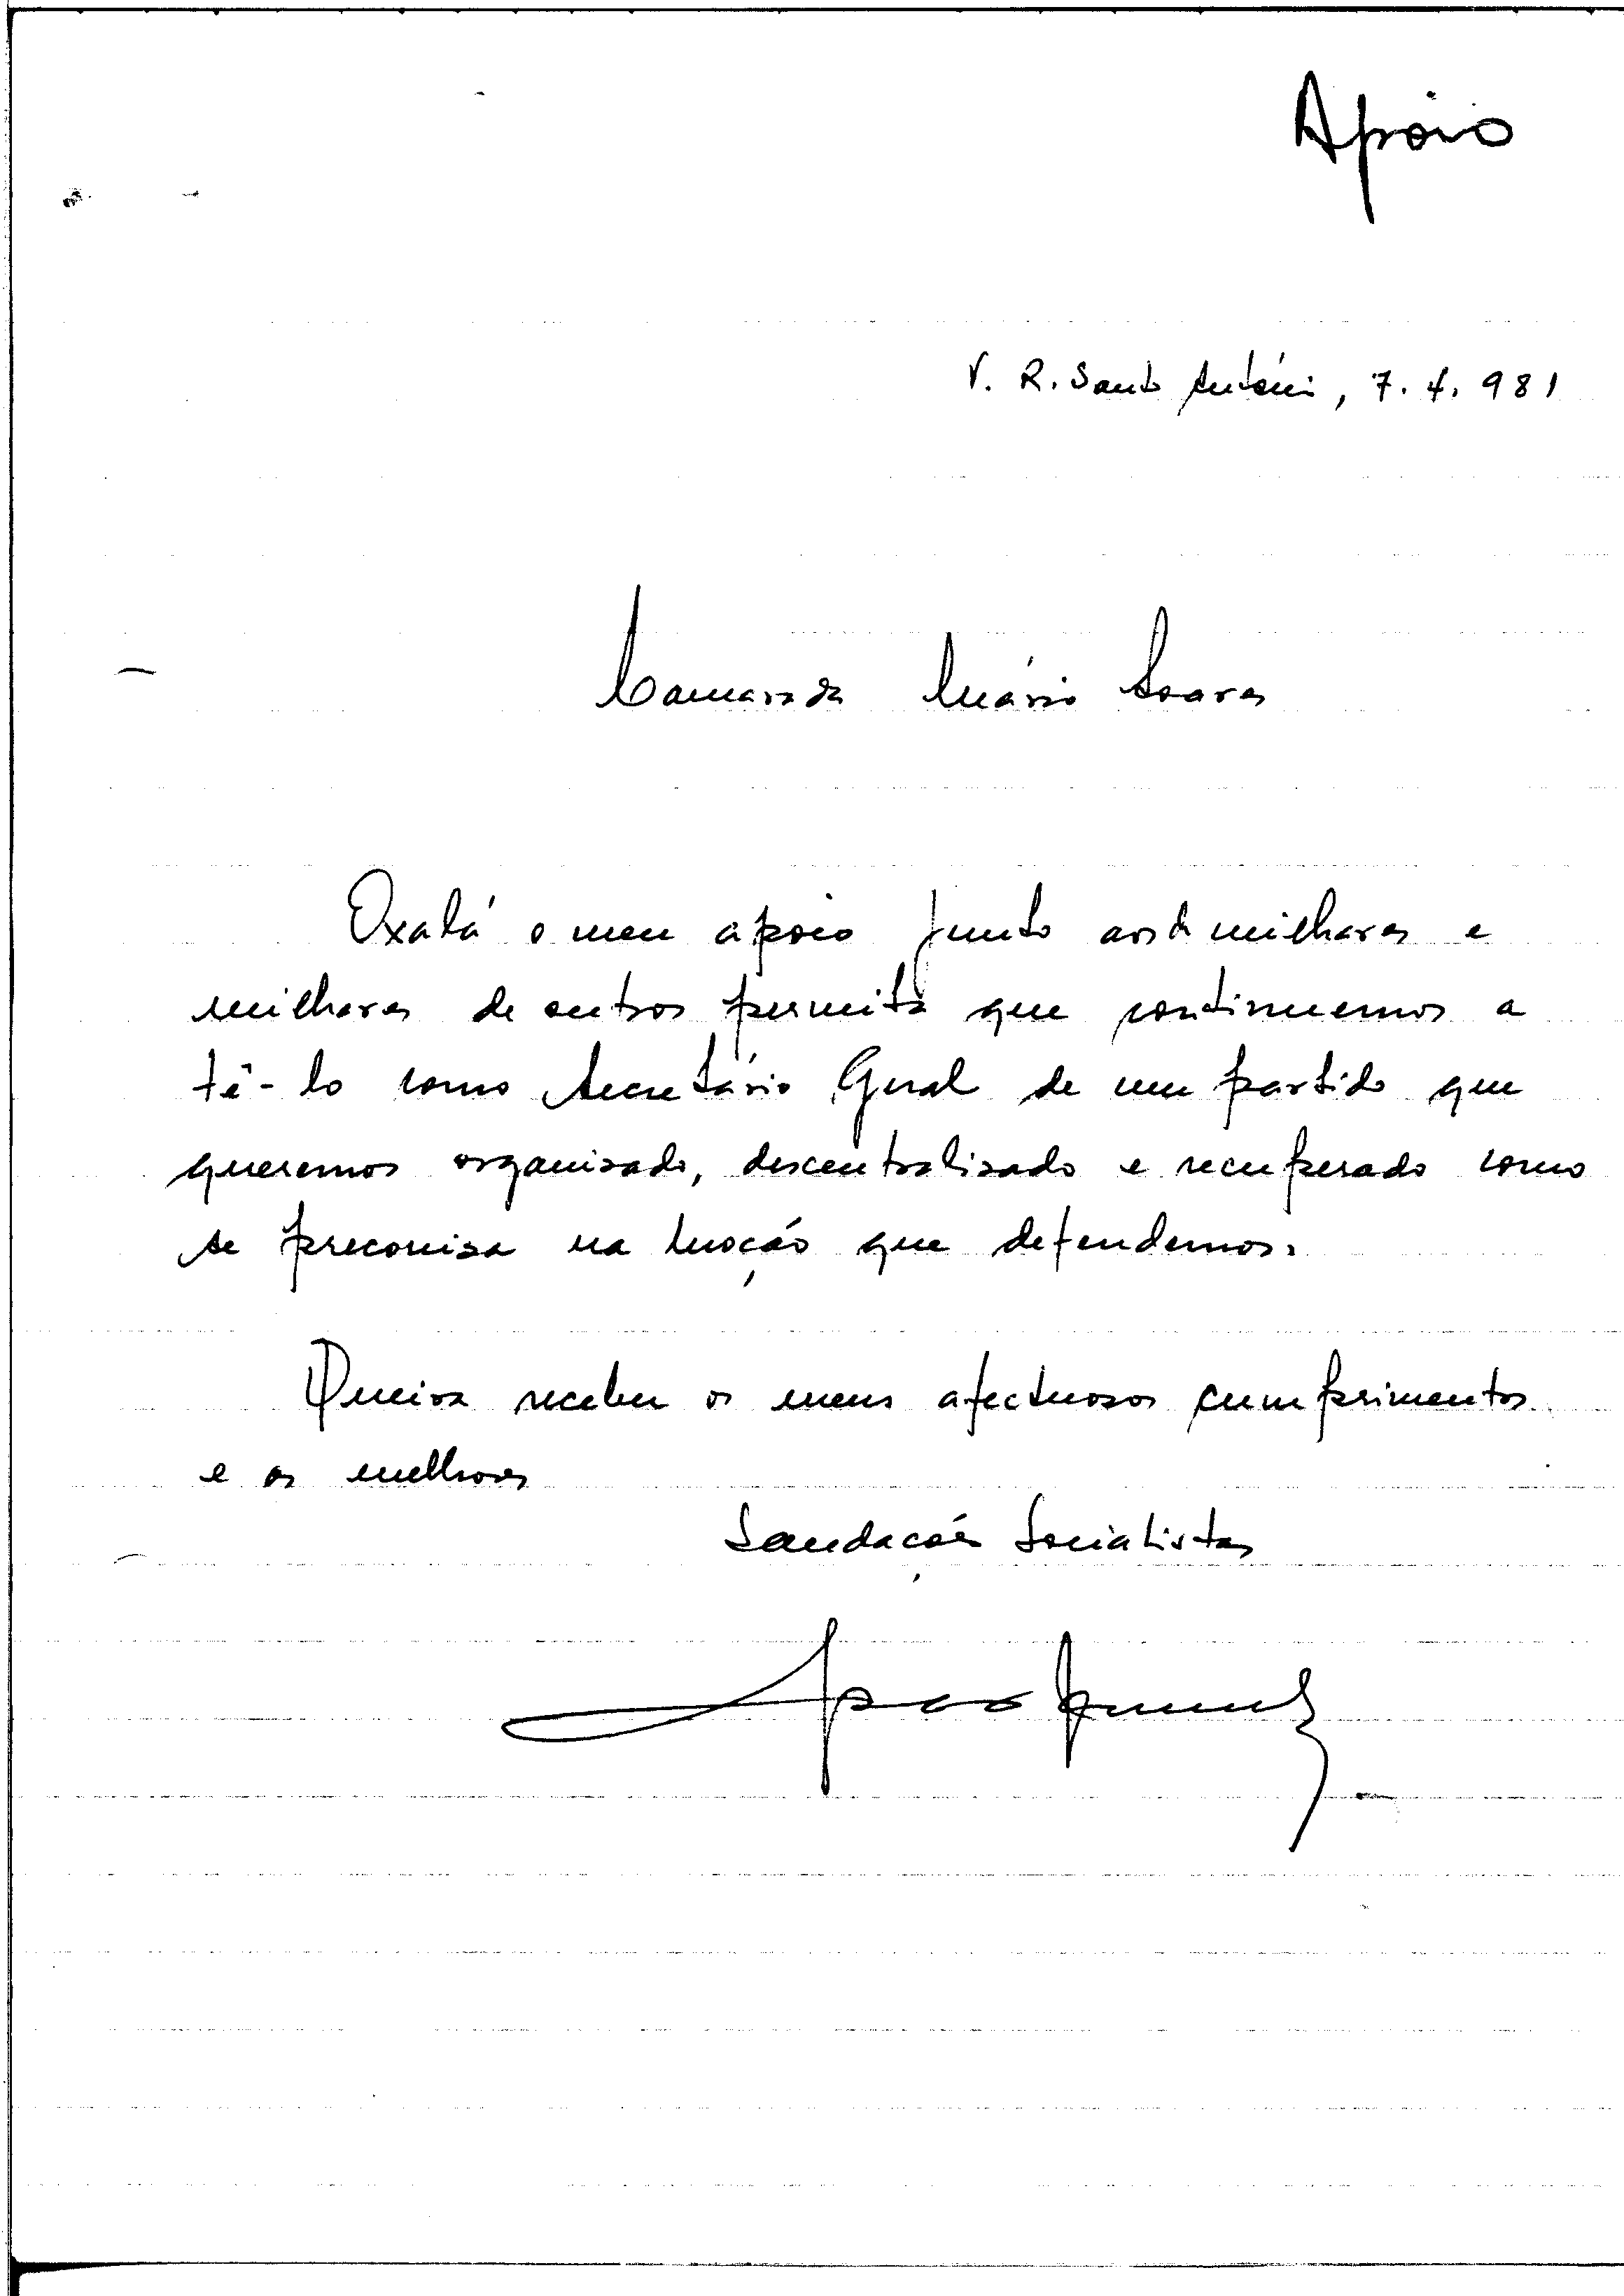 Apoio
V. R. Santo António, 7. 4. 981
Camarada Mário Soares
Oxalá o meu apoio junto aos de milhares e
milhares de outros permita que continuemos a
tê-lo como Secretário Geral de um partido que
queremos organizado, descentralizado e recuperado como
se preconisa na Moção que defendemos.
Queira receber os meus afectuosos cumprimentos
e as melhores
Saudações Socialistas